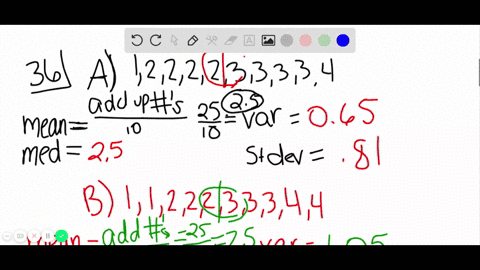 36) A) 1,2,2,2,2,3,3,3,3,4
mean = add up #'s / 10 25/10 = 2.5 var = 0.65
med = 2.5 stdev = .81
B) 1,1,2,2,2,3,3,3,4,4
mean = add #'s = 25 = 2.5 var = 1.05